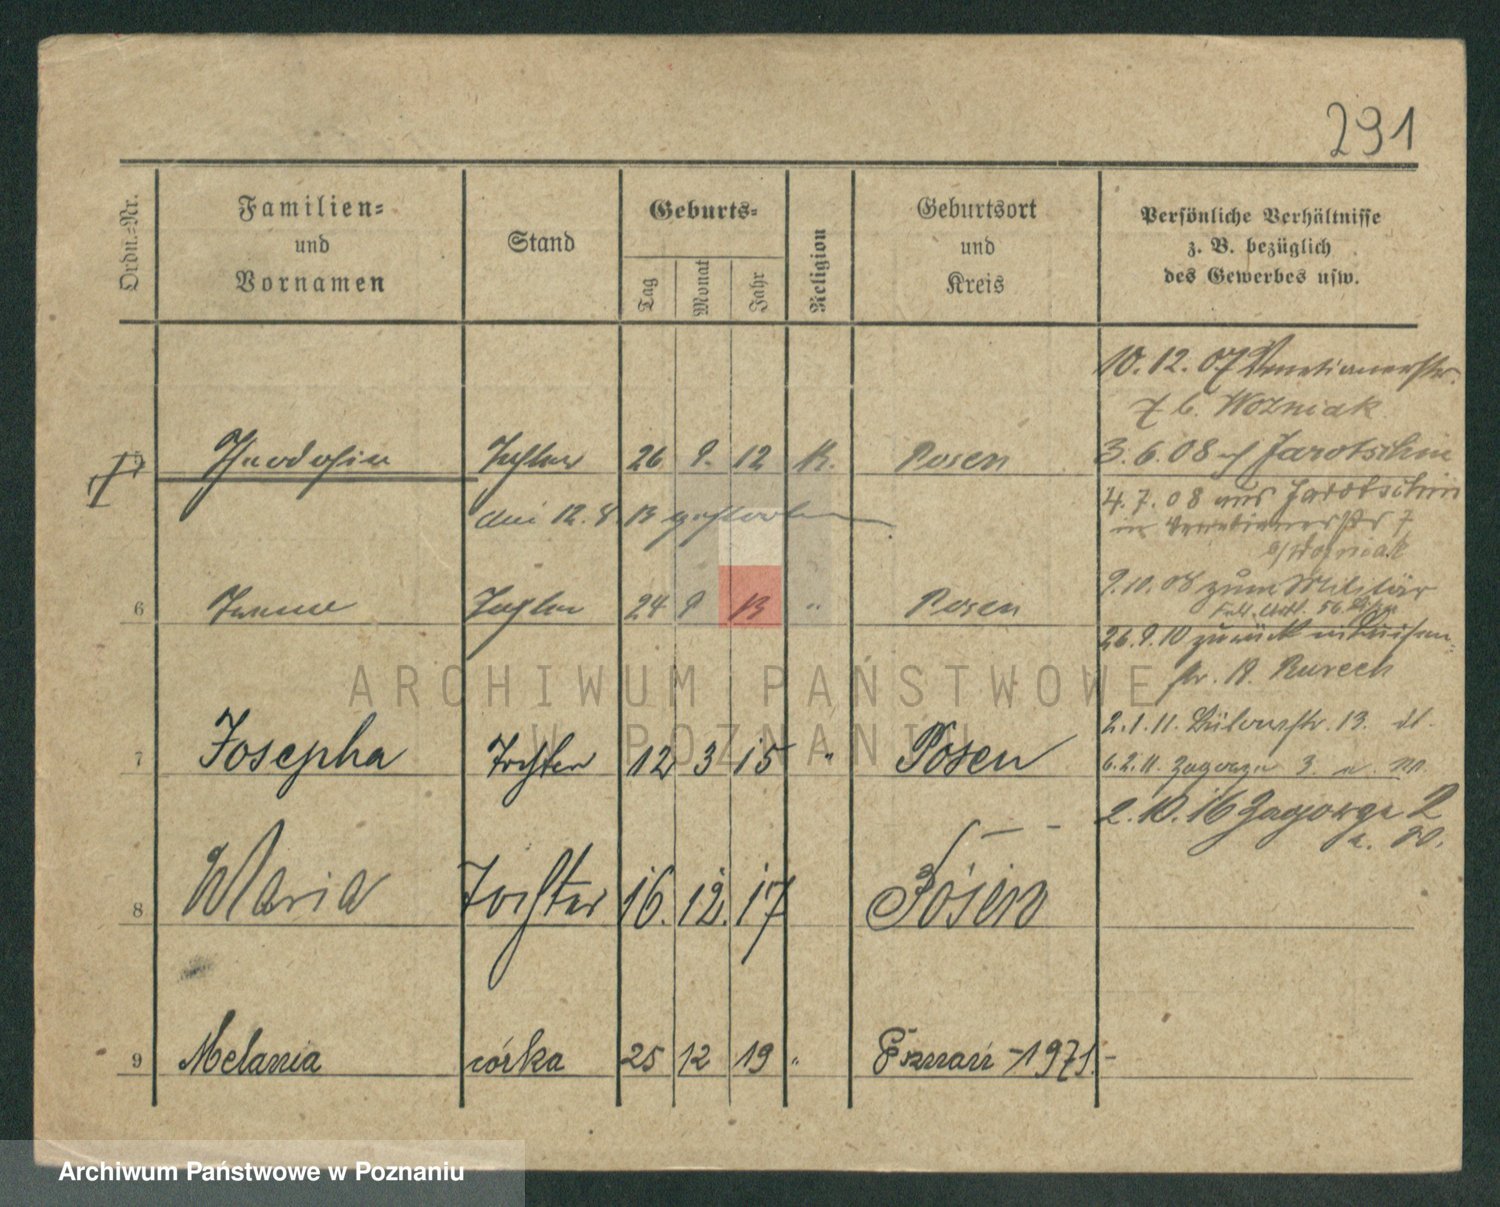 291
Ordn.=Nr.
Familien= und Vornamen
Stand
Geburts=
Tag
Monat
Jahr
Religion
Geburtsort und Kreis
Persönliche Verhältnisse
z. B. bezüglich
des Gewerbes usw.
10. 12. 07 Venetianerstr.
7 b. Wozniak
5 Theodosia Tochter 26 9. 12 K. Posen
3. 6. 08 Jarotschin
den 12. 8. 13 gestorben
4. 7. 08 aus Jarotschin
in Venetianerstr 7
b/Wozniak
6 Irene Tochter 24 9 13 " Posen
9. 10. 08 zum Militär
26. 9. 10 zurück
str.
7 Josepha Tochter 12 3 15 " Posen
2. 1. 11. Bülowstr. 13.
6. 2. 11. Zagorze 3.
2. 10. 16 Zagorze 2
8 Maria Tochter 16. 12. 17 Posen
9 Melania córka 25 12 19 " Poznań - 1971. -
ARCHIWUM PAŃSTWOWE
W POZNANIU
Archiwum Państwowe w Poznaniu